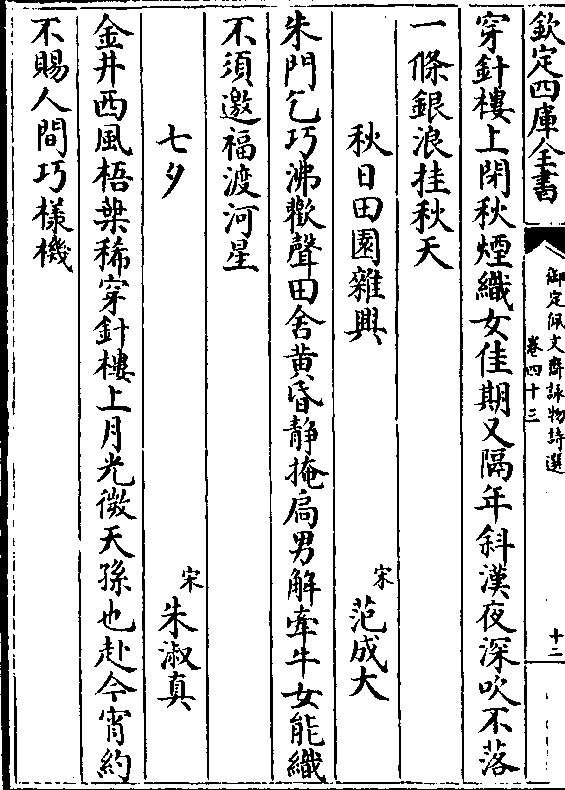 欽定四庫全書
御定佩文齋詠物詩選
卷四十三
十二
穿針樓上閑秋煙織女佳期又隔年斜漢夜深吹不落
一條銀浪挂秋天
秋日田園雜興
宋
范成大
朱門乞巧沸歡聲田舍黄昏靜掩扃男解牽牛女能織
不須邀福渡河星
七夕
宋
朱淑真
金井西風梧葉稀穿針樓上月光微天孫也赴今宵約
不賜人間巧様機